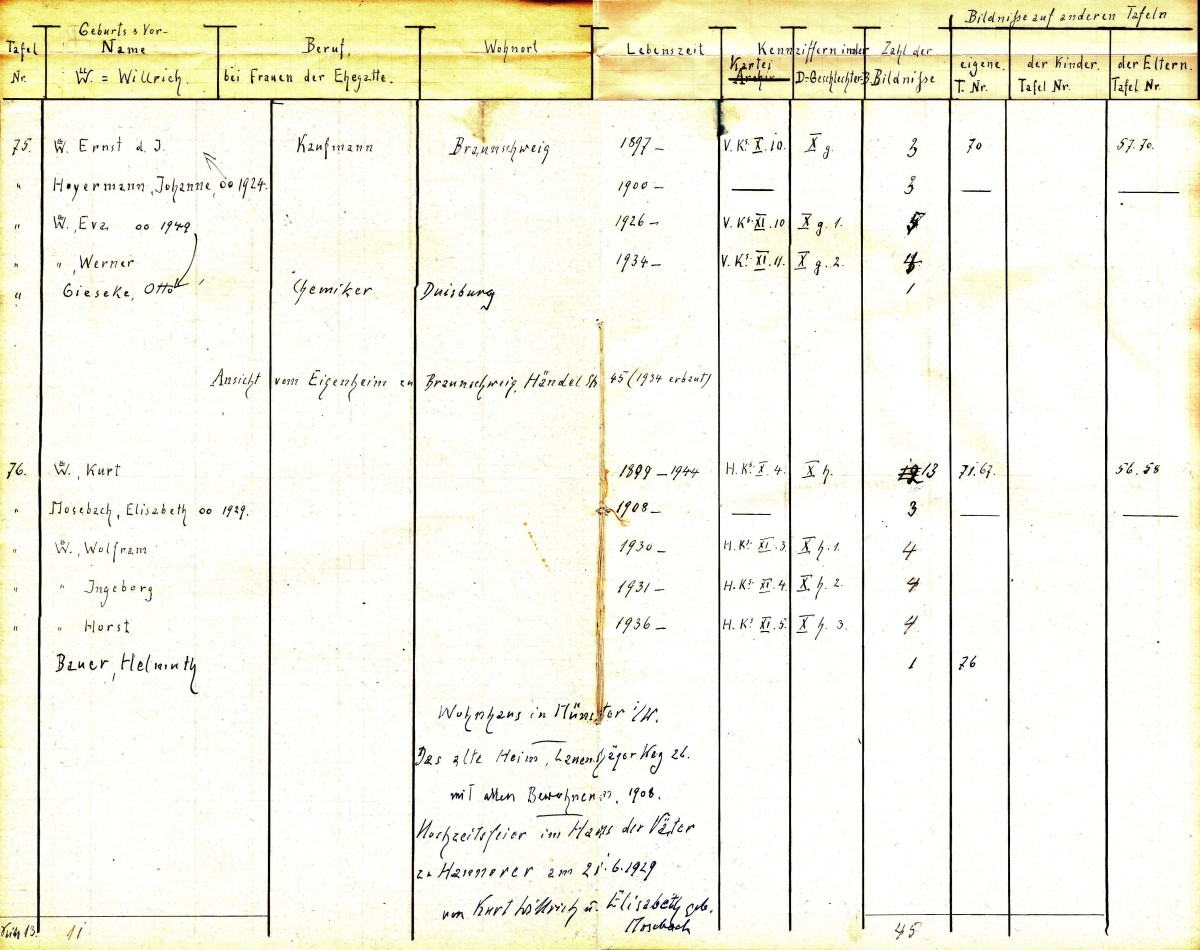 Bildniße auf anderen Tafeln
Tafel Nr. | Geburts & Vor-Name W. = Willrich. | Beruf, bei Frauen der Ehegatte. | Wohnort | Lebenszeit | Kennziffern in der Kartei Archiv D=Geschlechter-B. | Zahl der Bildniße | eigene. T. Nr. | der Kinder. Tafel Nr. | der Eltern. Tafel Nr.
75. W. Ernst d. J. Kaufmann Braunschweig 1897 – V. Ks. X. 10. X g. 3 70 57. 70.
" Hoyermann, Johanne, oo 1924. 1900 – — 3 — —
" W., Eva oo 1949 1926 – V. Ks. XI. 10 X g. 1.
" " , Werner 1934 – V. Ks. XI. 11. X g. 2.
" Gieseke, Otto Chemiker Duisburg 1
Ansicht vom Eigenheim zu Braunschweig, Händel Str 45 (1934 erbaut)
76. W., Kurt 1899 – 1944 H. Ks. X. 4. X h. 13 71. 67. 56. 58
" Mosebach, Elisabeth oo 1929. 1908 – — 3 — —
" W., Wolfram 1930 – H. Ks. XI. 3. X h. 1. 4
" " Ingeborg 1931 – H. Ks. XI. 4. X h. 2. 4
" " Horst 1936 – H. Ks. XI. 5. X h. 3. 4
Bauer, Helmuth 1 76
Wohnhaus in Münster i/W.
Das alte Heim, Weg 26.
mit allen Bewohnern, 1908.
Hochzeitsfeier im Haus der Väter
zu Hannover am 21.6.1929
von Kurt Willrich u. Elisabeth geb.
Mosebach
13. 11 45